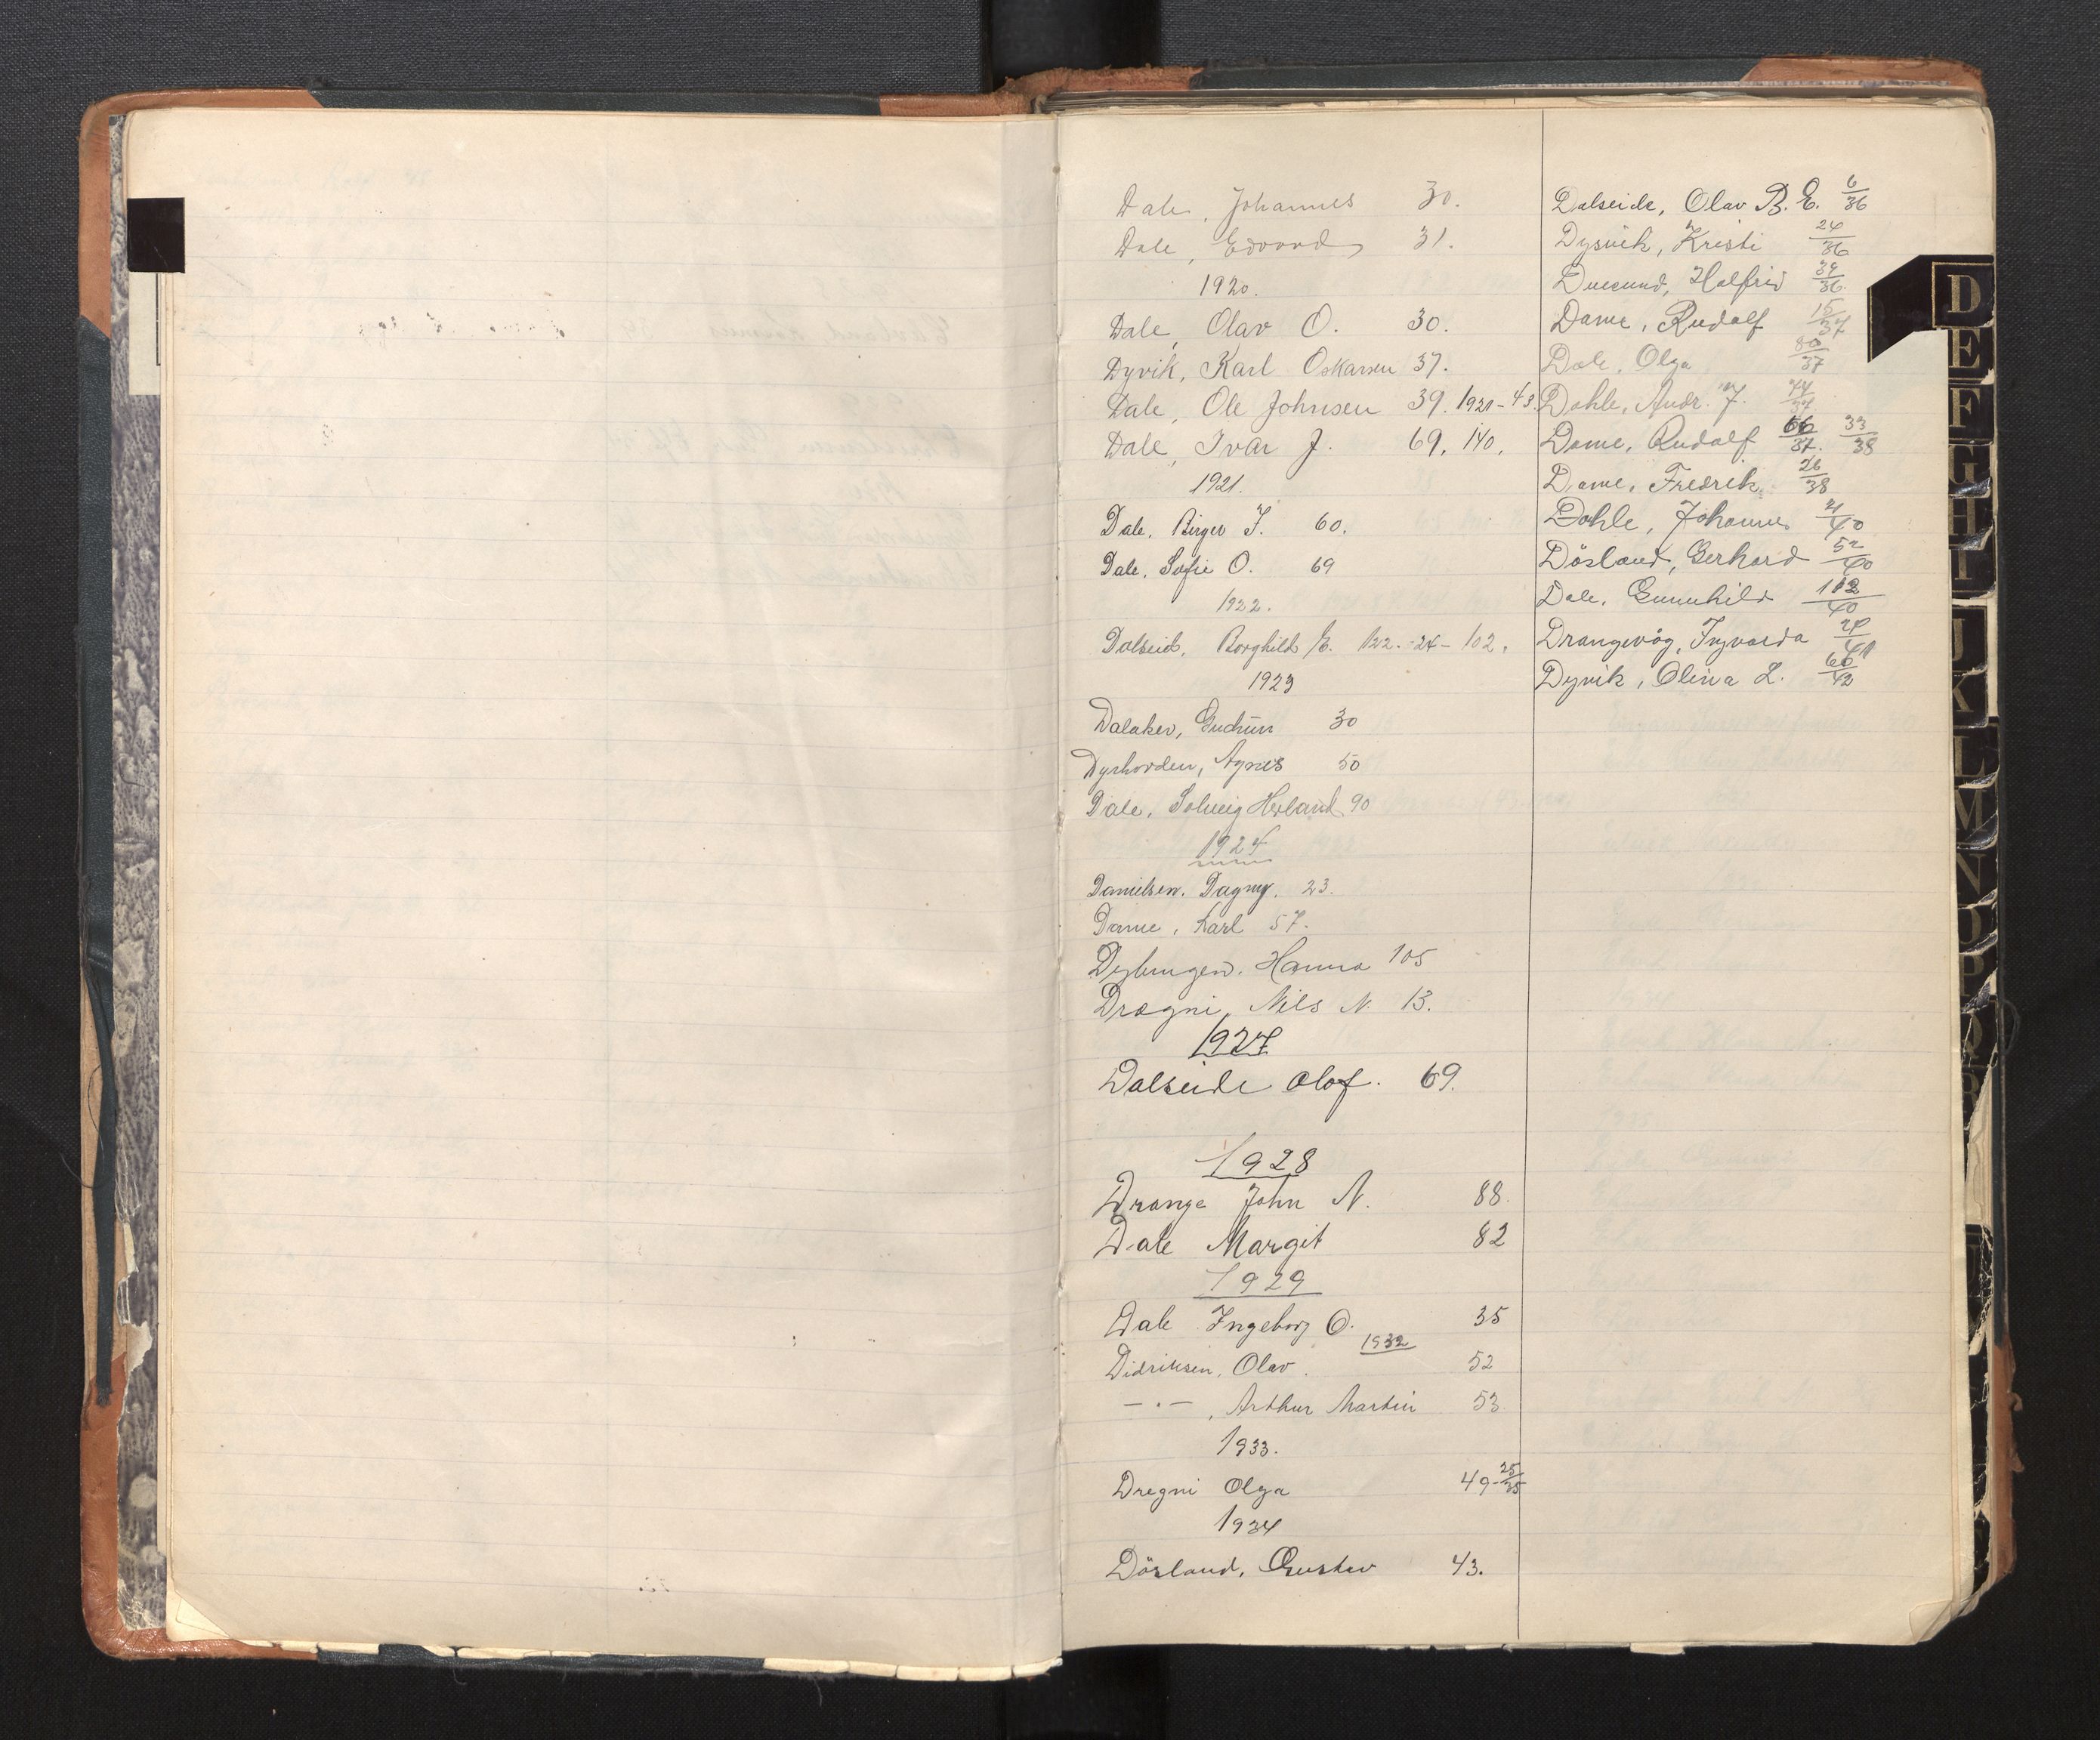 Dale, Johannes 30.
Dale, Edvard 31.
1920.
Dale, Olav O. 30.
Dyvik, Karl Oskarsen 37.
Dale, Ole Johnsen 39. 1921-43.
Dale, Ivar J. 69. 140.
1921.
Dale, Birger J. 60.
Dale, Sofie O. 69
1922.
Dalseid, Borghild E. 122. -24- 102.
1923
Dalaker, Gudrun 30
Dyrhovden, Agnes 50
Dale, Solveig Herland 90
1924
Danielsen, Dagny. 23.
Dame, Karl 57.
Hanna 105
Drægni, Nils N. 13.
1927
Dalseide Olof. 69.
1928
Drange John N. 88.
Dale Margit 82
1929
Dale Ingeborg O. 35
1932
Didriksen, Olav. 52
— . — , Arthur Martin 53
1933.
Dregni Olga 49-25/35
1934
Dösland, Gustav 43.
Dalseide, Olav B. E. 6/36
Dysvik, Kristi 24/36
Duesund, Halfrid 39/36
Dame, Rudolf 15/37
Dale, Olga 80/37
Dahle, Andr. J. 44/37
Dame, Rudolf 66/37. 33/38
Dame, Fredrik 26/38
Dahle, Johannes 21/40
Dösland, Gerhard 52/40
Dale, Gunnhild 102/40
Drangevåg, Ingvarda 28/41
Dyvik, Olina L. 66/42
D
E
F
G
H
I
J
K
L
M
N
O
P
Q
R